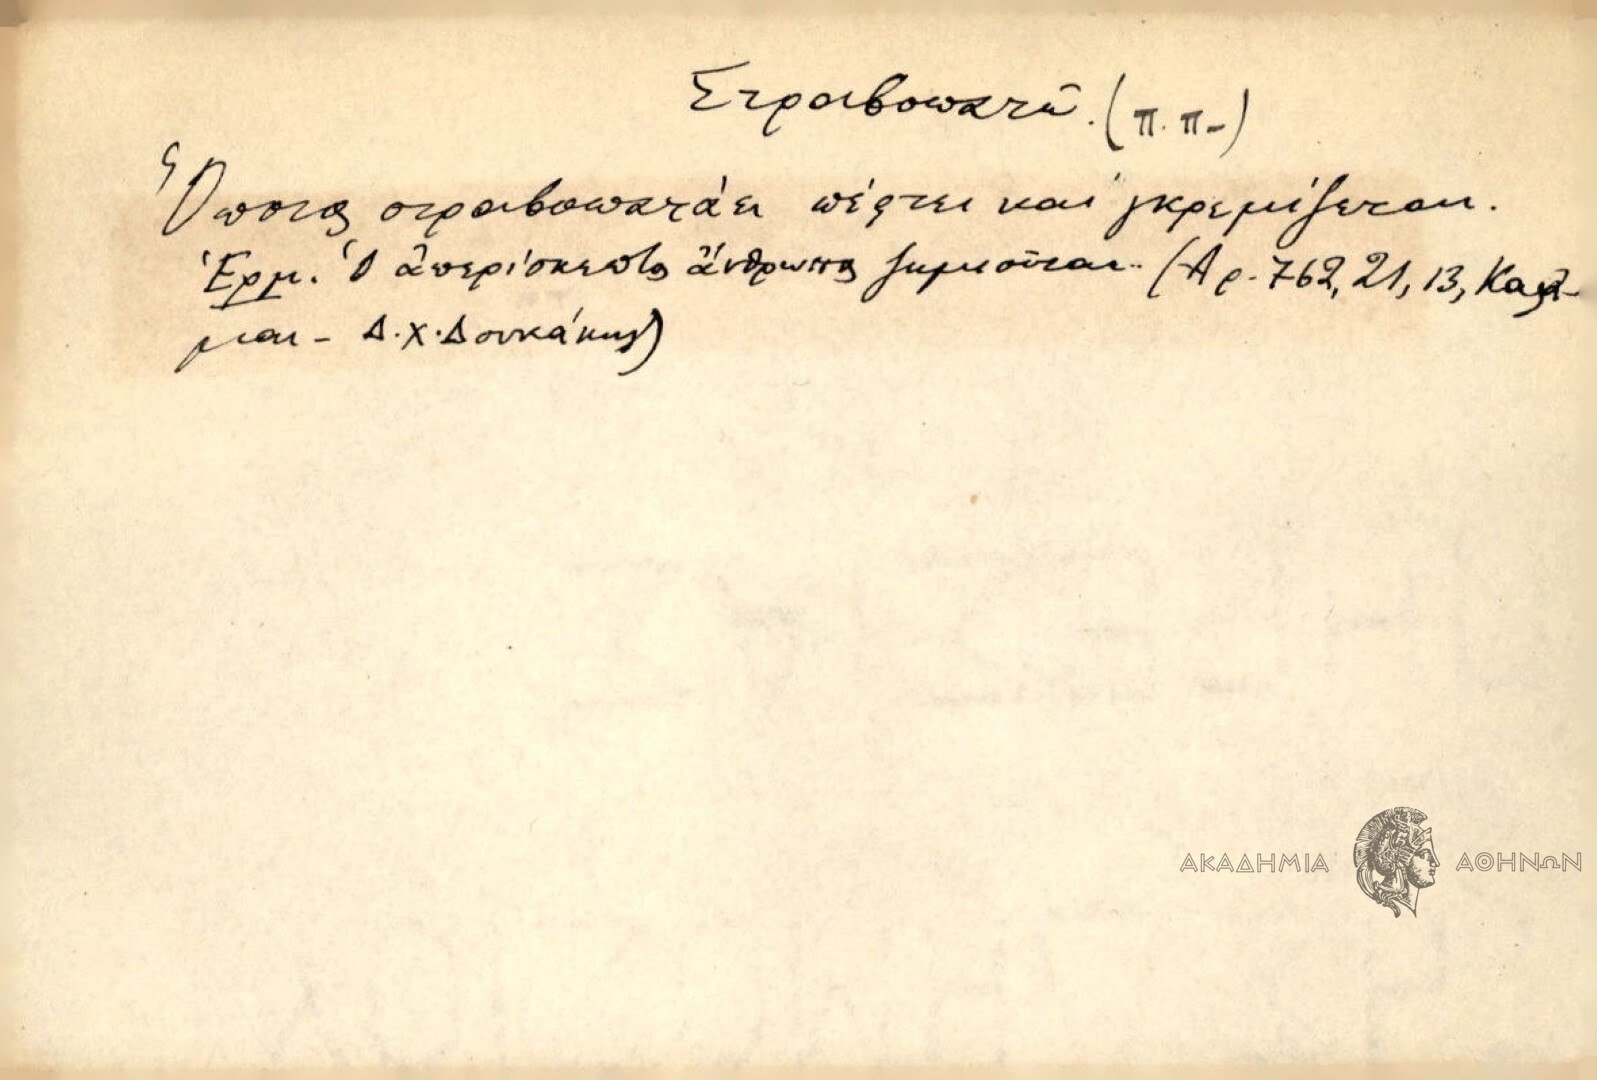 Στραβοπατῶ. (π.π-)
Ὅποιος στραβοπατάει πέφτει καὶ γκρεμίζεται.
Ἑρμ. Ὁ ἀπερίσκεπτος ἄνθρωπος ζημιοῦται. (Ἀρ. 762, 21, 13,
μαι - Δ.Χ.Δουκάκης)
ΑΚΑΔΗΜΙΑ ΑΘΗΝΩΝ